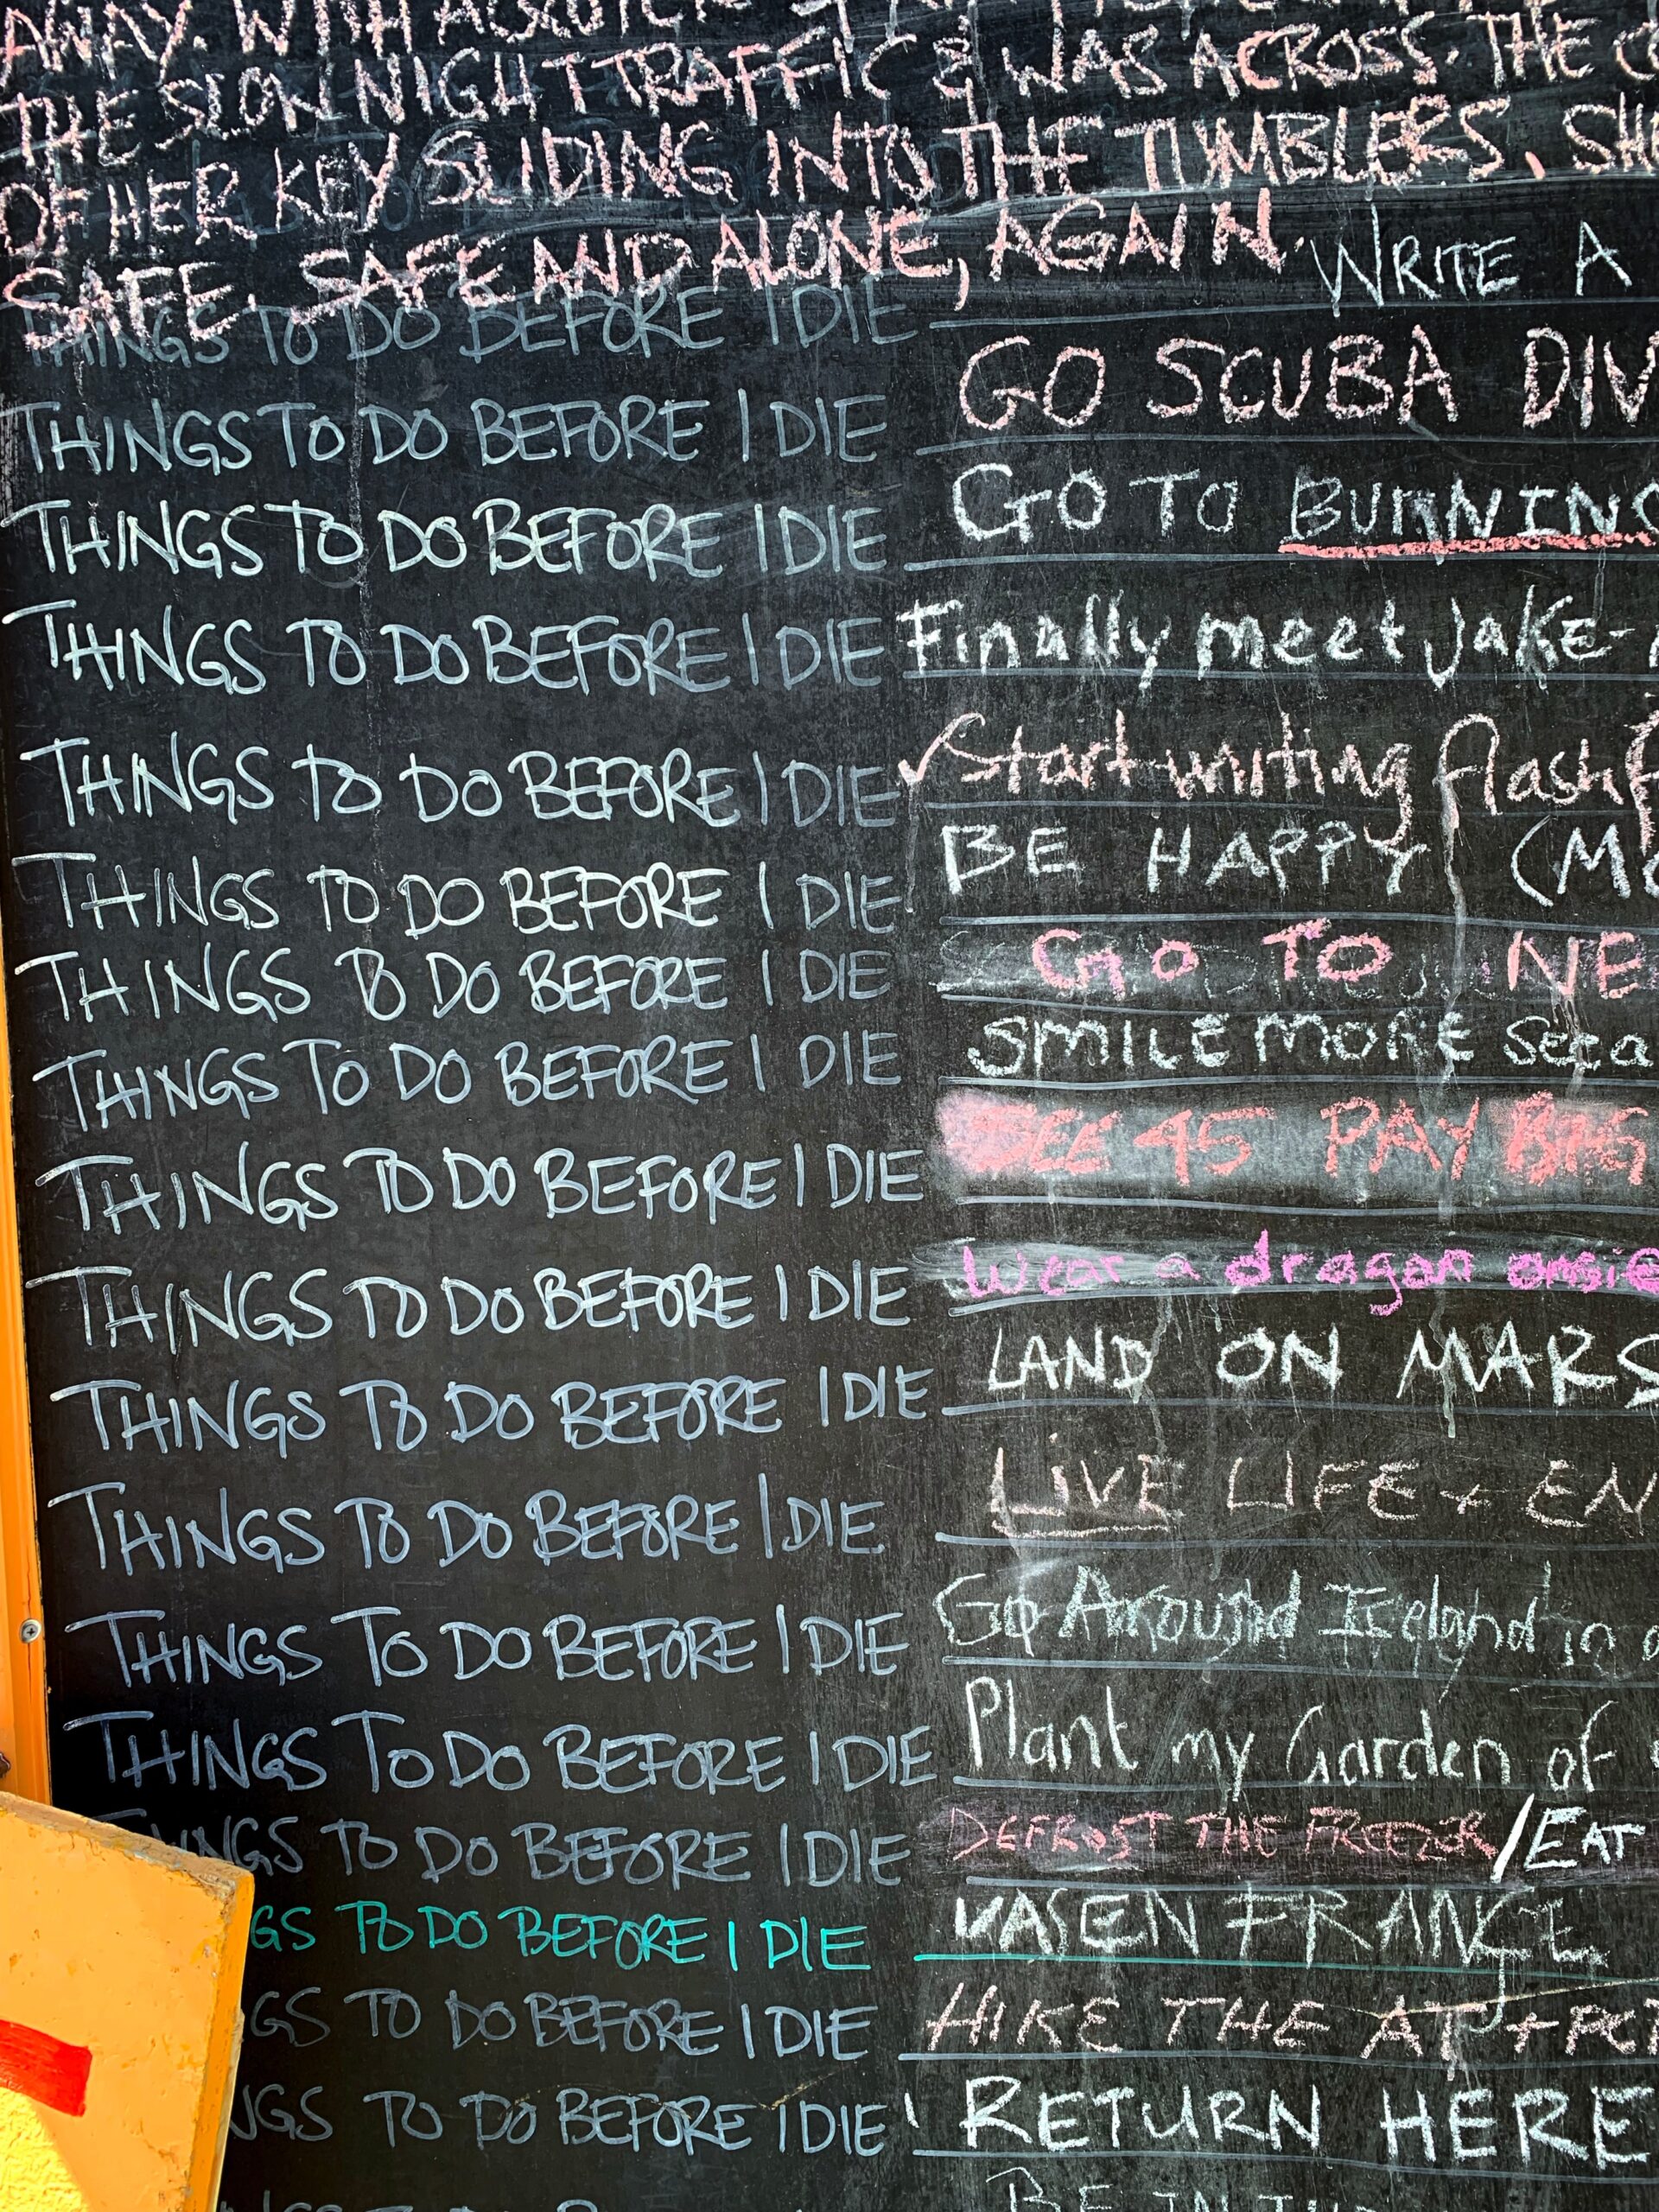 AWAY. WITH
THE SLOW NIGHT TRAFFIC & WAS ACROSS. THE
OF HER KEY SLIDING INTO THE TUMBLERS. SH
SAFE. SAFE AND ALONE, AGAIN.
THINGS TO DO BEFORE I DIE WRITE A
THINGS TO DO BEFORE I DIE GO SCUBA DIV
THINGS TO DO BEFORE I DIE GO TO BURNING
THINGS TO DO BEFORE I DIE Finally meet Jake-
THINGS TO DO BEFORE I DIE Start writing flash f
THINGS TO DO BEFORE I DIE BE HAPPY (MO
THINGS TO DO BEFORE I DIE GO TO NE
THINGS TO DO BEFORE I DIE SMILE MORE
THINGS TO DO BEFORE I DIE SEE 45 PAY BIG
THINGS TO DO BEFORE I DIE Wear a dragon onsie
THINGS TO DO BEFORE I DIE LAND ON MARS
THINGS TO DO BEFORE I DIE LIVE LIFE + EN
THINGS TO DO BEFORE I DIE Go Around Iceland in a
THINGS TO DO BEFORE I DIE Plant my Garden of
NGS TO DO BEFORE I DIE DEFROST THE FREEZER / EAT
GS TO DO BEFORE I DIE FRANCE
GS TO DO BEFORE I DIE HIKE THE AT + PCT
NGS TO DO BEFORE I DIE RETURN HERE
BE IN